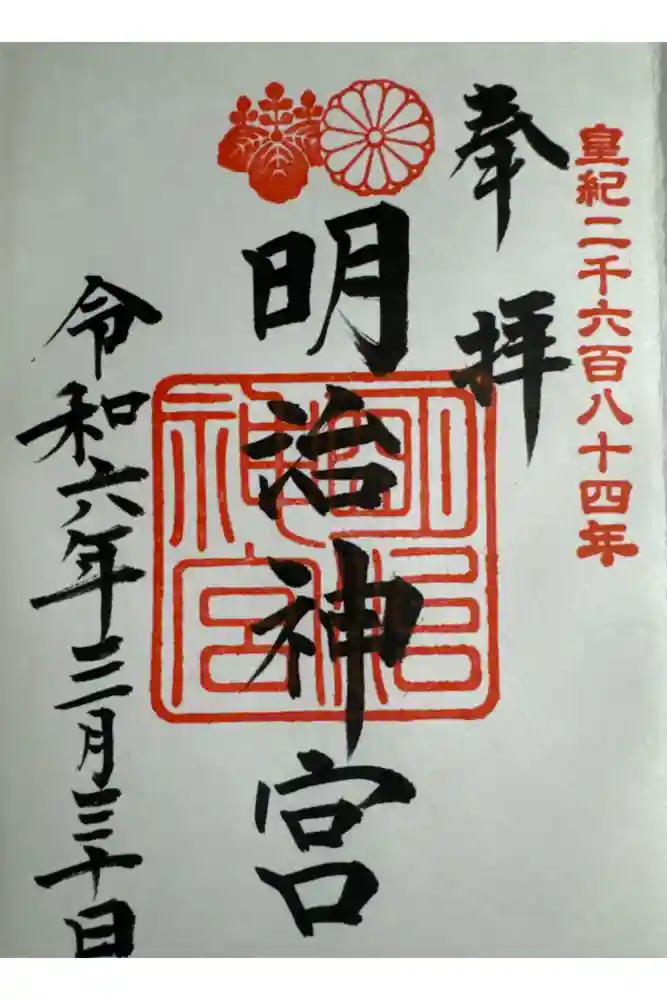 皇紀二千六百八十四年
奉拝
明治神宮
明治神宮
令和六年三月三十日